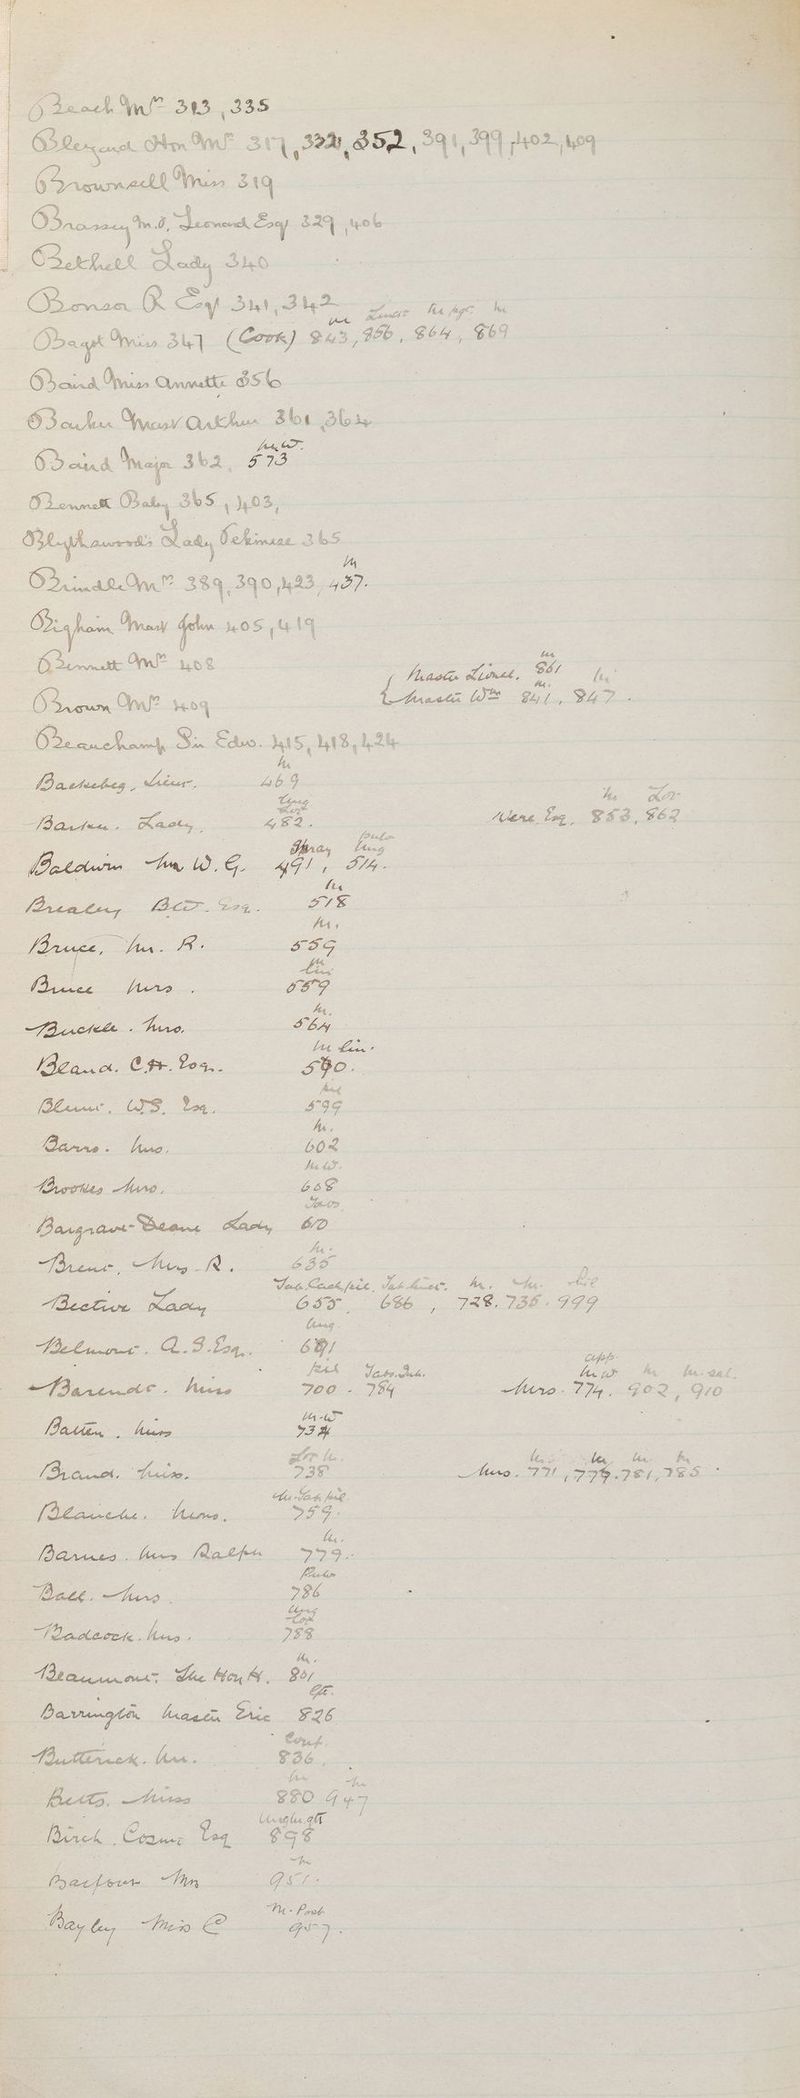 Beach Mrs 313, 335
Hon Mrs 317, 332, 352, 391, 399, 402, 409
Brownsell Miss 319
Brassey M.P. Leonard Esqr 329, 406
Bethell Lady 340
Bonsor R Esqr 341, 342
m m
Bagot Miss 347 (Cook) 843, 856, 864, 869
Baird Miss Annette 356
Barker Mast Arthur 361, 364
m.w.
Baird Major 362, 573
Bennett Baby 365, 403,
Blythswood's Lady Pekinese 365
m
Brindle Mrs 389, 390, 423, 437.
Bigham Mast John 405, 419
Bennett Mrs 408
m
Master Lionel. 861
m. m
Brown Mrs 409 Master Wm 841, 847.
Beauchamp Sir Edw. 415, 418, 424
m
Lieut. 469
ung m
Barker. Lady. 482. Esq. 853, 862
Spray ung
Baldwin Mr W. G. 491, 514.
m
Brealey Esq. 518
m.
Bruce. Mr. R. 559
m
Bruce Mrs. 559
m.
Buckle. Mrs. 564
m lin.
Bland. C.H. Esq. 590.
pil
Blunt. W.S. Esq. 599
m.
Barro. Mrs. 602
m.w.
Brookes Mrs. 608
Bargrave-Deane Lady 610
m.
Brent. Mrs R. 635
m. m. pil
Bective Lady 655, 686, 728. 735. 999
ung.
Belmont. A.S. Esq. 691
app.
pil m.w m
Miss 700. 784 Mrs. 774. 902, 910
m.w
Batten. Miss 734
m. m m m
Brand. Miss. 738 Mrs. 771, 777. 781, 785.
Blanche. Mons. 759.
m.
Barnes. Mrs Ralph 779.
Ball. Mrs. 786
ung
Badcock. Mrs. 788
m.
Beaumont. The Hon H. 801
Barrington Master Eric 826
Butterick. Mr. 836.
m m
Butts. Miss 880 947
Birch. Cosmo Esq 898
m
Balfour Mrs 951.
m. Post
Bayley Miss C 957.